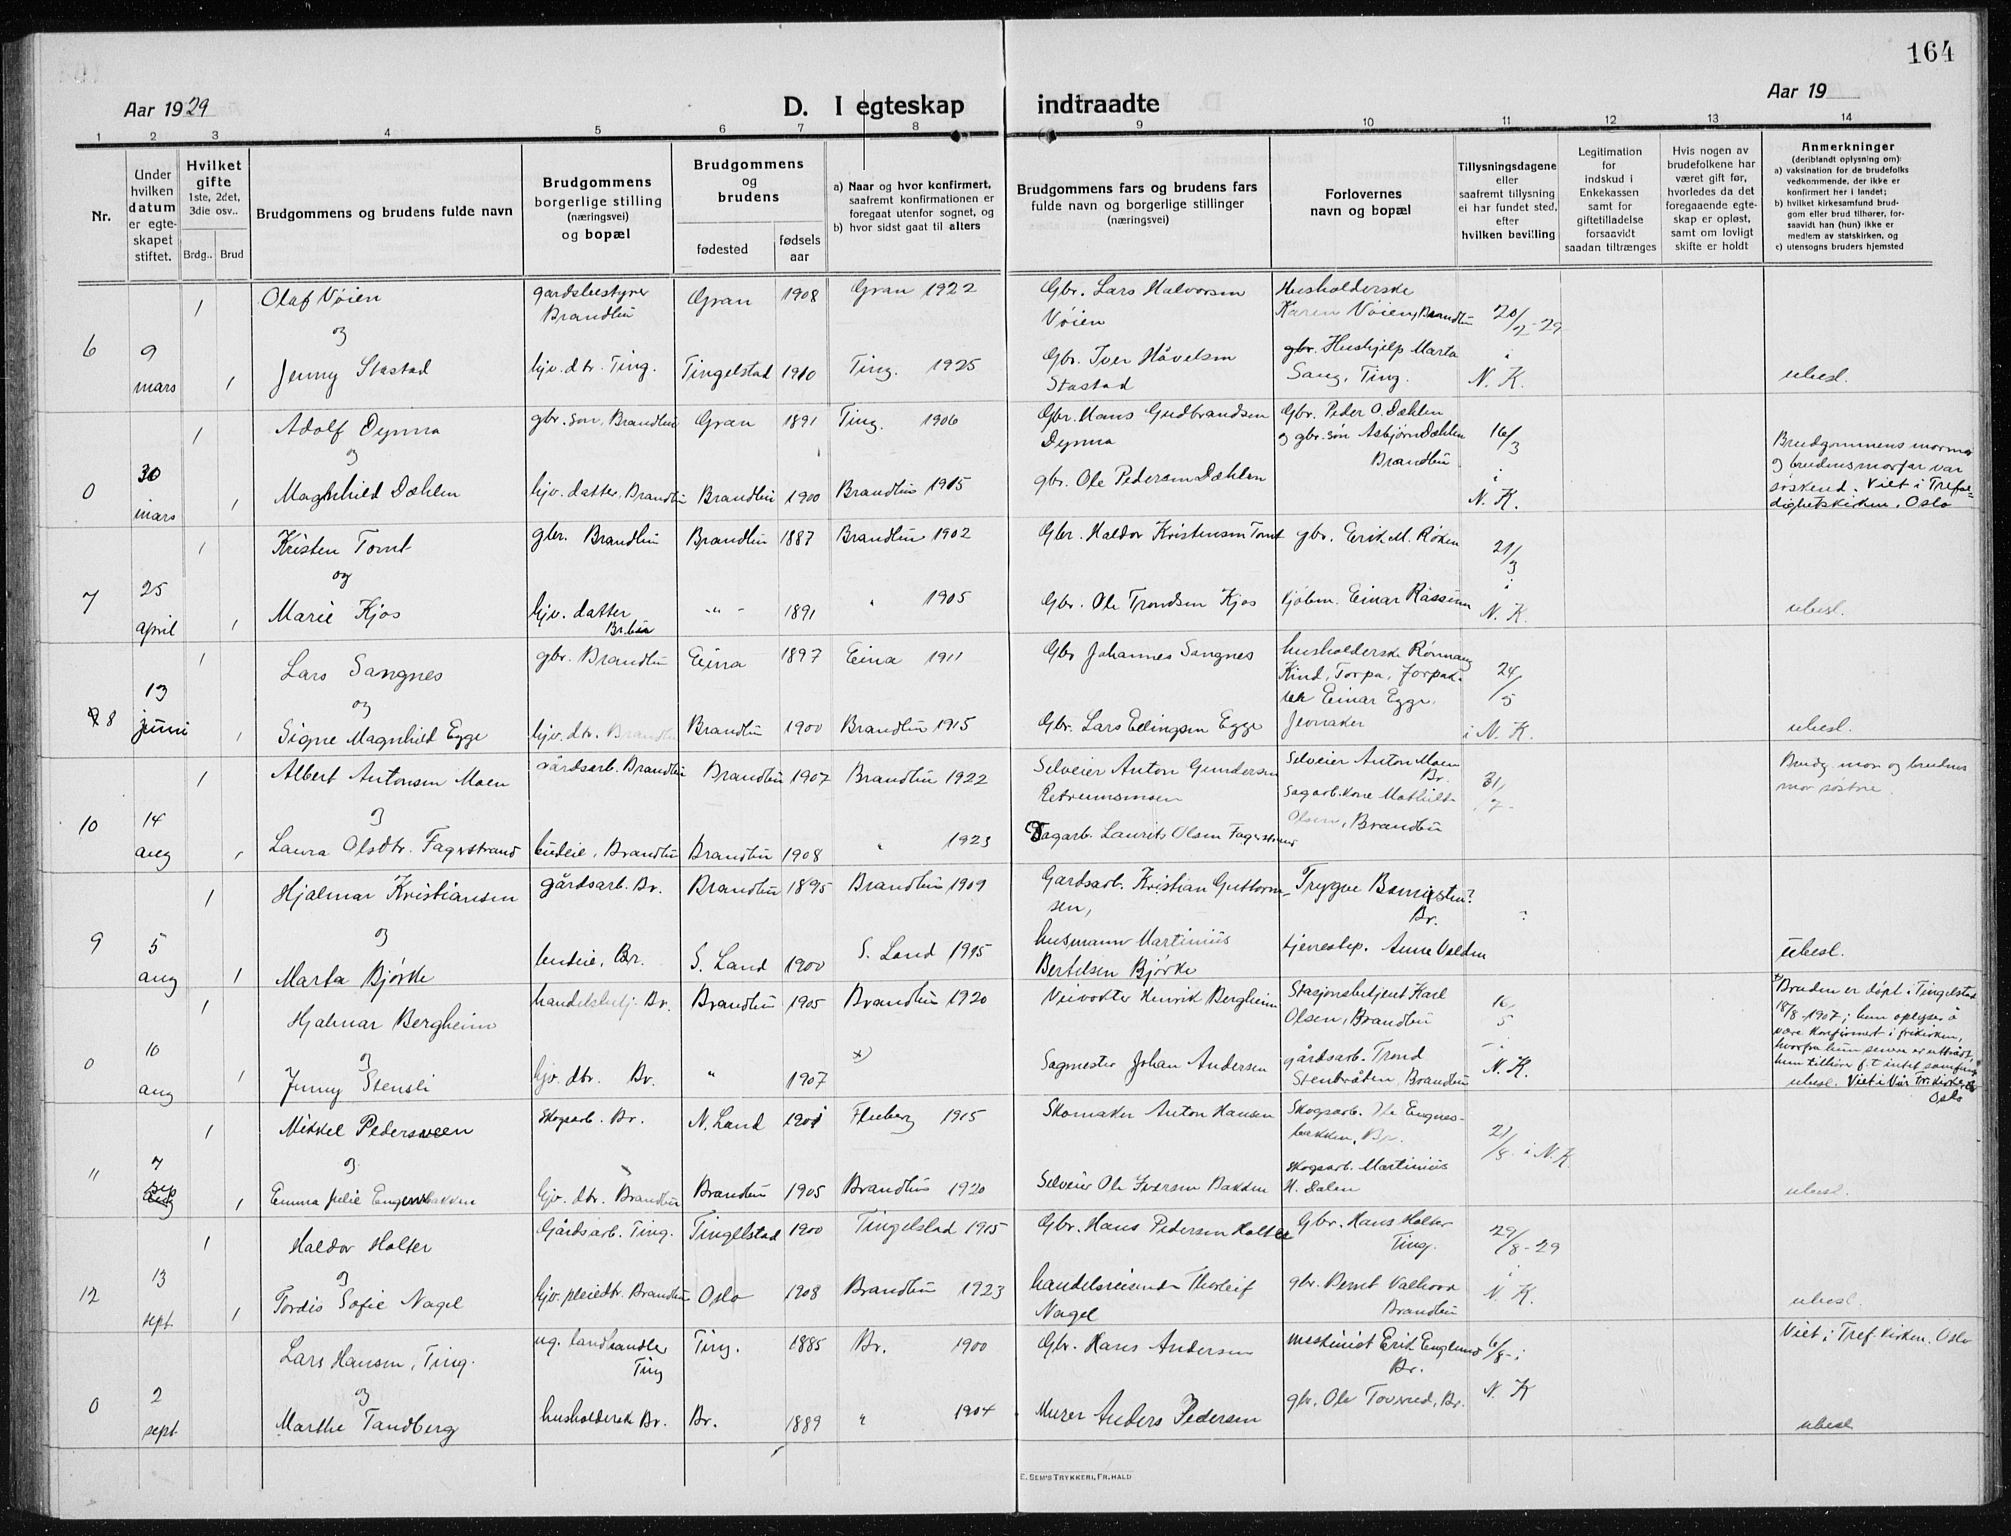 164
Aar 1929
D. I egteskap indtraadte
Aar 19
1 2 3 4 5 6 7 8 9 10 11 12 13 14
Nr.
Under
hvilken
datum
er egte-
skapet
stiftet.
Hvilket
gifte
1ste, 2det,
3die osv..
Brdg.. Brud
Brudgommens og brudens fulde navn
Brudgommens
borgerlige stilling
(næringsvei)
og bopæl
Brudgommens
og
brudens
fødested
fødsels
aar
a) Naar og hvor konfirmert,
saafremt konfirmationen er
foregaat utenfor sognet, og
b) hvor sidst gaat til alters
Brudgommens fars og brudens fars
fulde navn og borgerlige stillinger
(næringsvei)
Forlovernes
navn og bopæl
Tillysningsdagene
eller
saafremt tillysning
ei har fundet sted,
efter
hvilken bevilling
Legitimation
for
indskud i
Enkekassen
samt for
giftetilladelse
forsaavidt
saadan tiltrænges
Hvis nogen av
brudefolkene har
været gift før,
hvorledes da det
foregaaende egte-
skap er opløst,
samt om lovligt
skifte er holdt
Anmerkninger
(deriblandt oplysning om):
a) vaksination for de brudefolks
vedkommende, der ikke er
konfirmert her i landet;
b) hvilket kirkesamfund brud-
gom eller brud tilhører, for-
saavidt han (hun) ikke er
medlem av statskirken, og
c) utensogns bruders hjemsted
6
9
mars
1
Olaf Vøien
gardsbestyrer
Brandbu
Gran 1908 Gran 1922
Gbr. Lars Halvorsen
Vøien
Husholderske
Karen Vøien, Brandbu
20/2-29
og
1
Jenny Stastad
hjv. dtr. Ting.
Tingelstad 1910 Ting. 1925
Gbr. Iver Håvelsen
Stastad
gbr. Hushjelp Marta
Sang, Ting.
i
N. K.
ubesl.
0
30
mars
1
Adolf Dynna
gbr. søn, Brandbu
Gran 1891 Ting. 1906
Gbr. Hans Gudbrandsen
Dynna
Gbr. Peder O. Dæhlen
og gbr. søn Asbjørn Dæhlen
Brandbu
16/3
og
1
Maghhild Dæhlen
hjv. datter, Brandbu
Brandbu 1900 Brandbu 1915
gbr. Ole Pedersen Dæhlen
i
N. K.
Brudgommens mormor
og brudens morfar var
søskend. Viet i Trefol=
dighetskirken, Oslo
7
25
april
1
Kristen Tomt
gbr. Brandbu
Brandbu 1887 Brandbu 1902
Gbr. Haldor Kristensen Tomt
gbr. Erik M. Røken
21/3
og
1
Marie Kjos
hjv. datter
Br.bu
" " 1891 " 1905
Gbr. Ole Trondsen Kjos
kjøbm. Einar Rassum
i
N. K.
ubesl.
8
13
juni
1
Lars Sangnes
gbr. Brandbu
Eina 1897 Eina 1911
Gbr Johannes Sangnes
husholderske Rønnaug
Kind, Torpa, forpak-
ter Einar Egge,
Jevnaker
24/5
og
1
Signe Magnhild Egge
hjv. dtr. Brandbu
Brandbu 1900 Brandbu 1915
Gbr. Lars Ellingsen Egge
i N. K.
ubesl.
10
14
aug
1
Albert Antonsen Moen
gårdsarb. Brandbu
Brandbu 1907 Brandbu 1922
Selveier Anton Gundersen
Retrumsmoen
Selveier Anton Moen
Br.
Sagarb. kone Mathilde
Olsen, Brandbu
31/7
Brudg. mor og brudens
mor søstre.
og
1
Laura Olsdtr. Fagerstrand
budeie, Brandbu
Brandbu 1908 " 1923
Sagarb. Laurits Olsen Fagerstrand
9
5
aug
1
Hjalmar Kristiansen
gårdsarb. Br.
Brandbu 1895 Brandbu 1909
Gardsarb. Kristian Guttorm-
sen,
Trygve
Br.
?
og
1
Marta Bjørke
budeie, Br.
S. Land 1900 S. Land 1915
husmann Martinius
Bertelsen Bjørke
tjenestep. Anne Velden
ubesl.
0
10
aug
1
Hjalmar Bergheim
handelsbetj. Br.
Brandbu 1905 Brandbu 1920
Veivokter Henrik Bergheim
Stasjonsbetjent Karl
Olsen, Brandbu
16/5
og
1
Jenny Stensli
hjv. dtr. Br.
" 1907 x)
Sagmester Johan Andersen
gårdsarb. Trond
Stenbråten, Brandbu
i
N. K.
x) Bruden er døpt i Tingelstad
18/8-1907; hun oplyser å
være konfirmert i frikirken,
hvorfra hun senere er utrådt,
hun tilhører f.t. intet samfund
ubesl. Viet i Vår Fr. kirke
Oslo
"
7
sep
1
Mikkel Pedersveen
Skogsarb. Br.
N. Land 1901 Fluberg 1915
Skomaker Anton Hansen
Skogsarb. Ole Engnes-
bakken, Br.
21/8 i N. K.
og
1
Emma Julie Engensbakken
hjv. dtr. Brandbu
Brandbu 1905 Brandbu 1920
Selveier Ole Iversen Bakken
skogsarb. Martinius
H. Dalen
ubesl.
12
13
sept.
1
Haldor Holter
Gårdsarb. Ting.
Tingelstad 1900 Tingelstad 1915
Gbr. Hans Pedersen Holter
Gbr. Hans Holter
Ting.
29/8-29
og
1
Tordis Sofie Nagel
hjv. pleiedtr. Brandbu
Oslo 1908 Brandbu 1923
handelsreisende Thorleif
Nagel
gbr. Bernt Valhovd
Brandbu
i
N. K.
ubesl.
0
2
sept.
Lars Hansen, Ting.
ug. landhandler
Ting
Ting. 1885 Br. 1900
Gbr. Hans Andersen
maskinist Erik Englund
Br.
6/8- i
Viet i Tref. kirken. Oslo
og
Marthe Tandberg
husholdersk Br.
Br. 1889 " 1904
Murer Anders Pedersen
gbr. Ole Tovsrud, Br.
N. K
ubesl
E. SEM'S TRYKKERI, FR.HALD